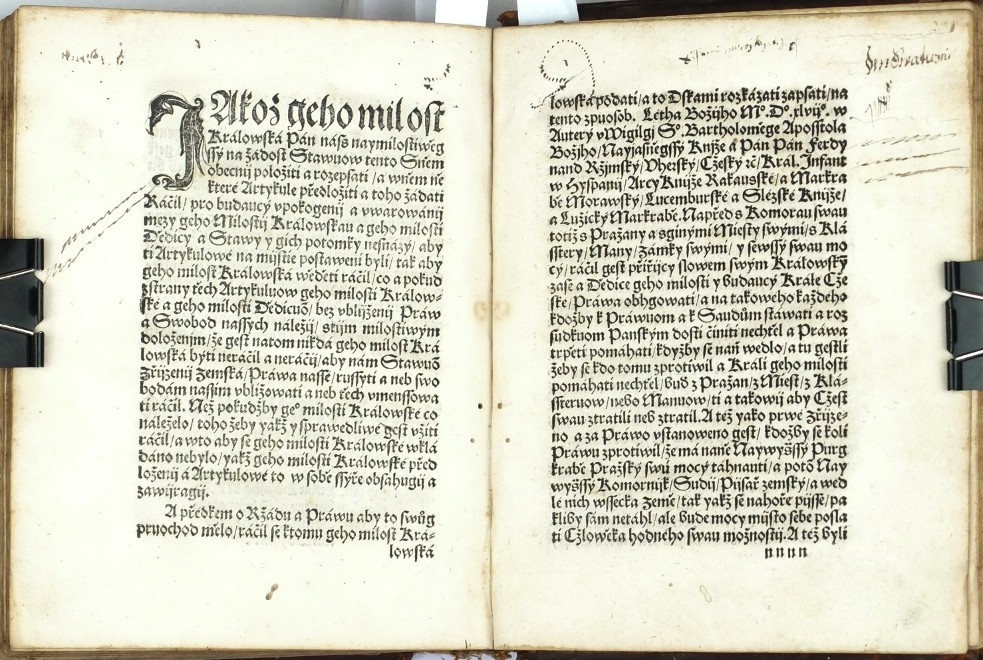 JAkož geho milost
Královská Pán náss naymilostiwěg
ssý na žádost Stawuow tento Sněm
obecnij položiti a rozepsati / a wněm ně
které Artykule předložiti a toho žádati
Ráčil / pro budaucý vpokogenij a vwarowánij
mezy geho Milostij Královskau a geho milosti
Dědicy a Stawy y gich potomky nesnázý / aby
ti Artykulowé na mijstie postaweni byli / tak aby
geho milost Králowská wěděti ráčil / co a pokud
zstrany těch Artykuluow geho milosti Králow-
ské a geho milosti Dědicuō / bez vblijženij Práw
a Swobod nassých náležij / stijm milostiwým
doloženijm / že gest natom nikdá geho milost Krá
lowská býti neráčil a neráčij / aby nám Stawuō
Zřijzenij zemská / Práwa nasse / russyti a neb swo
bodám nassim vbližowati a neb těch vmenssowa
ti ráčil. Než pokudžby geº milosti Králowské co
náleželo / toho žeby yakž y sprawedliwé gest vžiti
ráčil / a wto aby se geho milosti Králowské wklá
dáno nebylo / yakž geho milosti Králowské před
loženij a Artykulowé to w sobě ssýře obsahugij a
zawijragij.
A předkem o Ržádu a Práwu aby to swůg
pruochod mělo / ráčil se ktomu geho milost Krá-
lowská
lowská podati / a to Dskami rozkázati zapsati / na
tento zpuosob. Letha Božijho Mº. Dº. xlvijº. w
Auterý v Wigilgi Sº. Bartholoměge Aposstola
Božjho / Nayjasněgssý Knijže a Pán Pán Ferdy
nand Ržijmský / Vherský / Cžeský rč / Král. Infant
w Hyspanij / ArcyKnijže Rakauské / a Markra
bě Morawský / Lucemburské a Slézské Knijže /
a Lužický Markrabě. Napřed s Komorau swau
totiž s Pražany a s ginými Miesty swými / s Klá
sstery / Many / Zámky swými / y sewssý swau mo
cý / ráčil gest přiřijcy slowem swým Králowským
za se a Dědice geho milosti y budaucý Krále Cže
ské / Práwa obhgowati / a na takowého každého
kdožby k Práwuom a k Saudům stáwati a roz
sudkuom Panským dosti činiti nechtěl a Práwa
trpěti pomáhati / kdyžby se naň wedlo / a tu gestli
žeby se kdo tomu zprotiwil a Králi geho milosti
pomáhati nechtěl / buď z Pražan / z Miest / z Klá-
ssteruow / nebo Manuow / ti a takowij aby Cžest
swau ztratili neb ztratil. A též yako prwé Zřijze-
no a za Práwo vstanoweno gest / kdožby se koli
Práwu zprotiwil / že má naně Naywyšssý Purg
krabě Pražský swú mocý táhnauti / a potō Nay
wyšssý Komornijk / Sudij / Pijsař zemský / a wed
lé nich wssecka Země / tak yakž se nahoře pijsse / pa
kliby sám netáhl / ale bude mocy mijsto sebe posla
ti Cžlowěka hodného swau možnostij. A též byli
nnnn